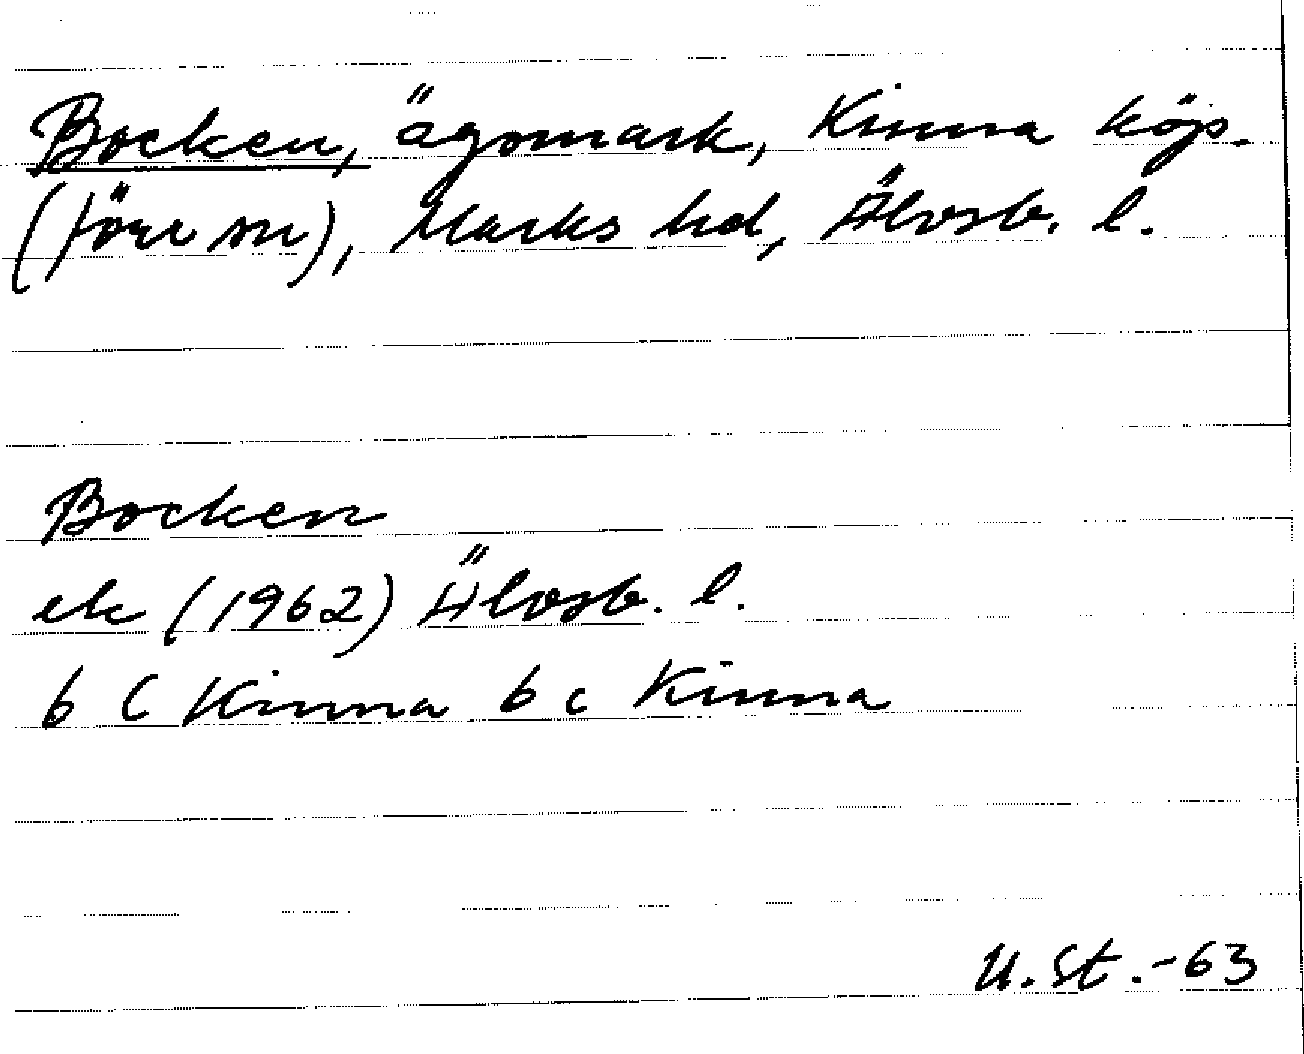 Bocken, ägomark, Kinna köp.
(förr sn), Marks hd, Älvsb. l.
Bocken
ek (1962) Älvsb. l.
6 C Kinna 6 c Kinna
U.St.-63